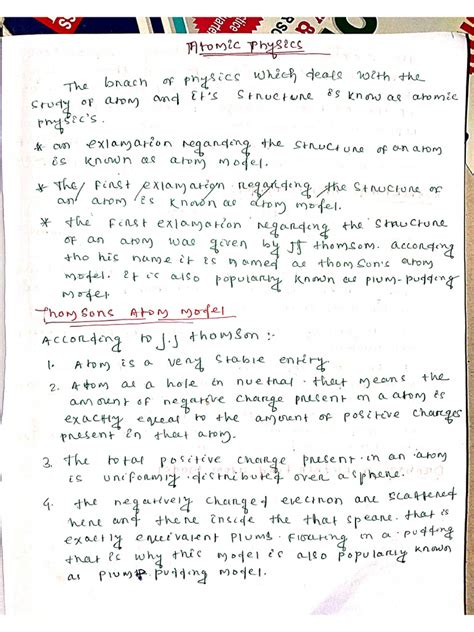 Atomic Physics
The bnach of physics which deals with the
study of atom and it's structure is know as atomic
physic's.
* an exlamation regarding the structure of an atom
is known as atom model.
* The first exlamation regarding the structure of
an atom is known as atom model.
* the first exlamation regarding the structure
of an atom was given by JJ thomsom. according
tho his name it is named as thomson's atom
model. it is also popularly known as plum-pudding
model
Thomsons Atom model
According to J.J thomson :-
1. Atom is a very stable entity.
2. Atom as a hole in nuetral. that means the
amount of negative charge present in a atom is
exactly equal to the amount of positive charges
present in that atom.
3. The total positive charge present in an atom
is uniformly distributed over a sphene.
4. the negatively charged electron are scattered
here and there inside the that speare. that is
exactly equivalent plums floating in a pudding
that is why this model is also popularly known
as plum pudding model.